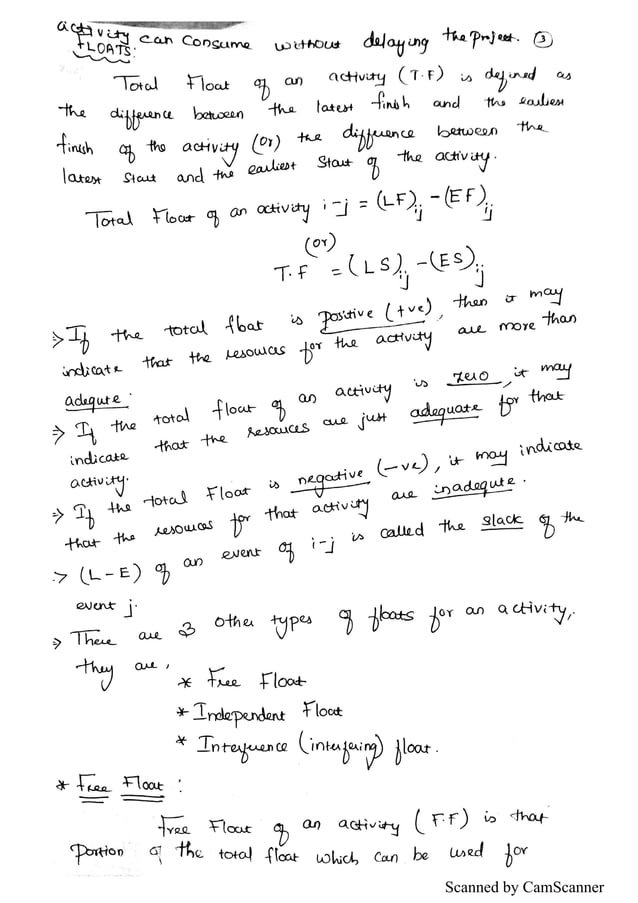 activity can consume without delaying the project. ③
FLOATS:
Total Float of an activity (T.F) is defined as
the difference between the latest finish and the earliest
finish of the activity (or) the difference between the
latest start and the earliest start of the activity.
Total Float of an activity i-j = (LF)ij - (EF)ij
(or)
T.F = (LS)ij - (ES)ij
⇒ If the total float is positive (+ve), then it may
indicate that the resources for the activity are more than
adequte.
⇒ If the total float of an activity is zero, it may
indicate that the resources are just adequate for that
activity.
⇒ If the total Float is negative (-ve), it may indicate
that the resources for that activity are inadequte.
⇒ (L-E) of an event of i-j is called the slack of the
event j.
⇒ There are 3 other types of floats for an activity,
they are,
* Free Float
* Independent Float
* Interference (interfering) float.
* Free Float :
Free Float of an activity (F.F) is that
portion of the total float which can be used for
Scanned by CamScanner